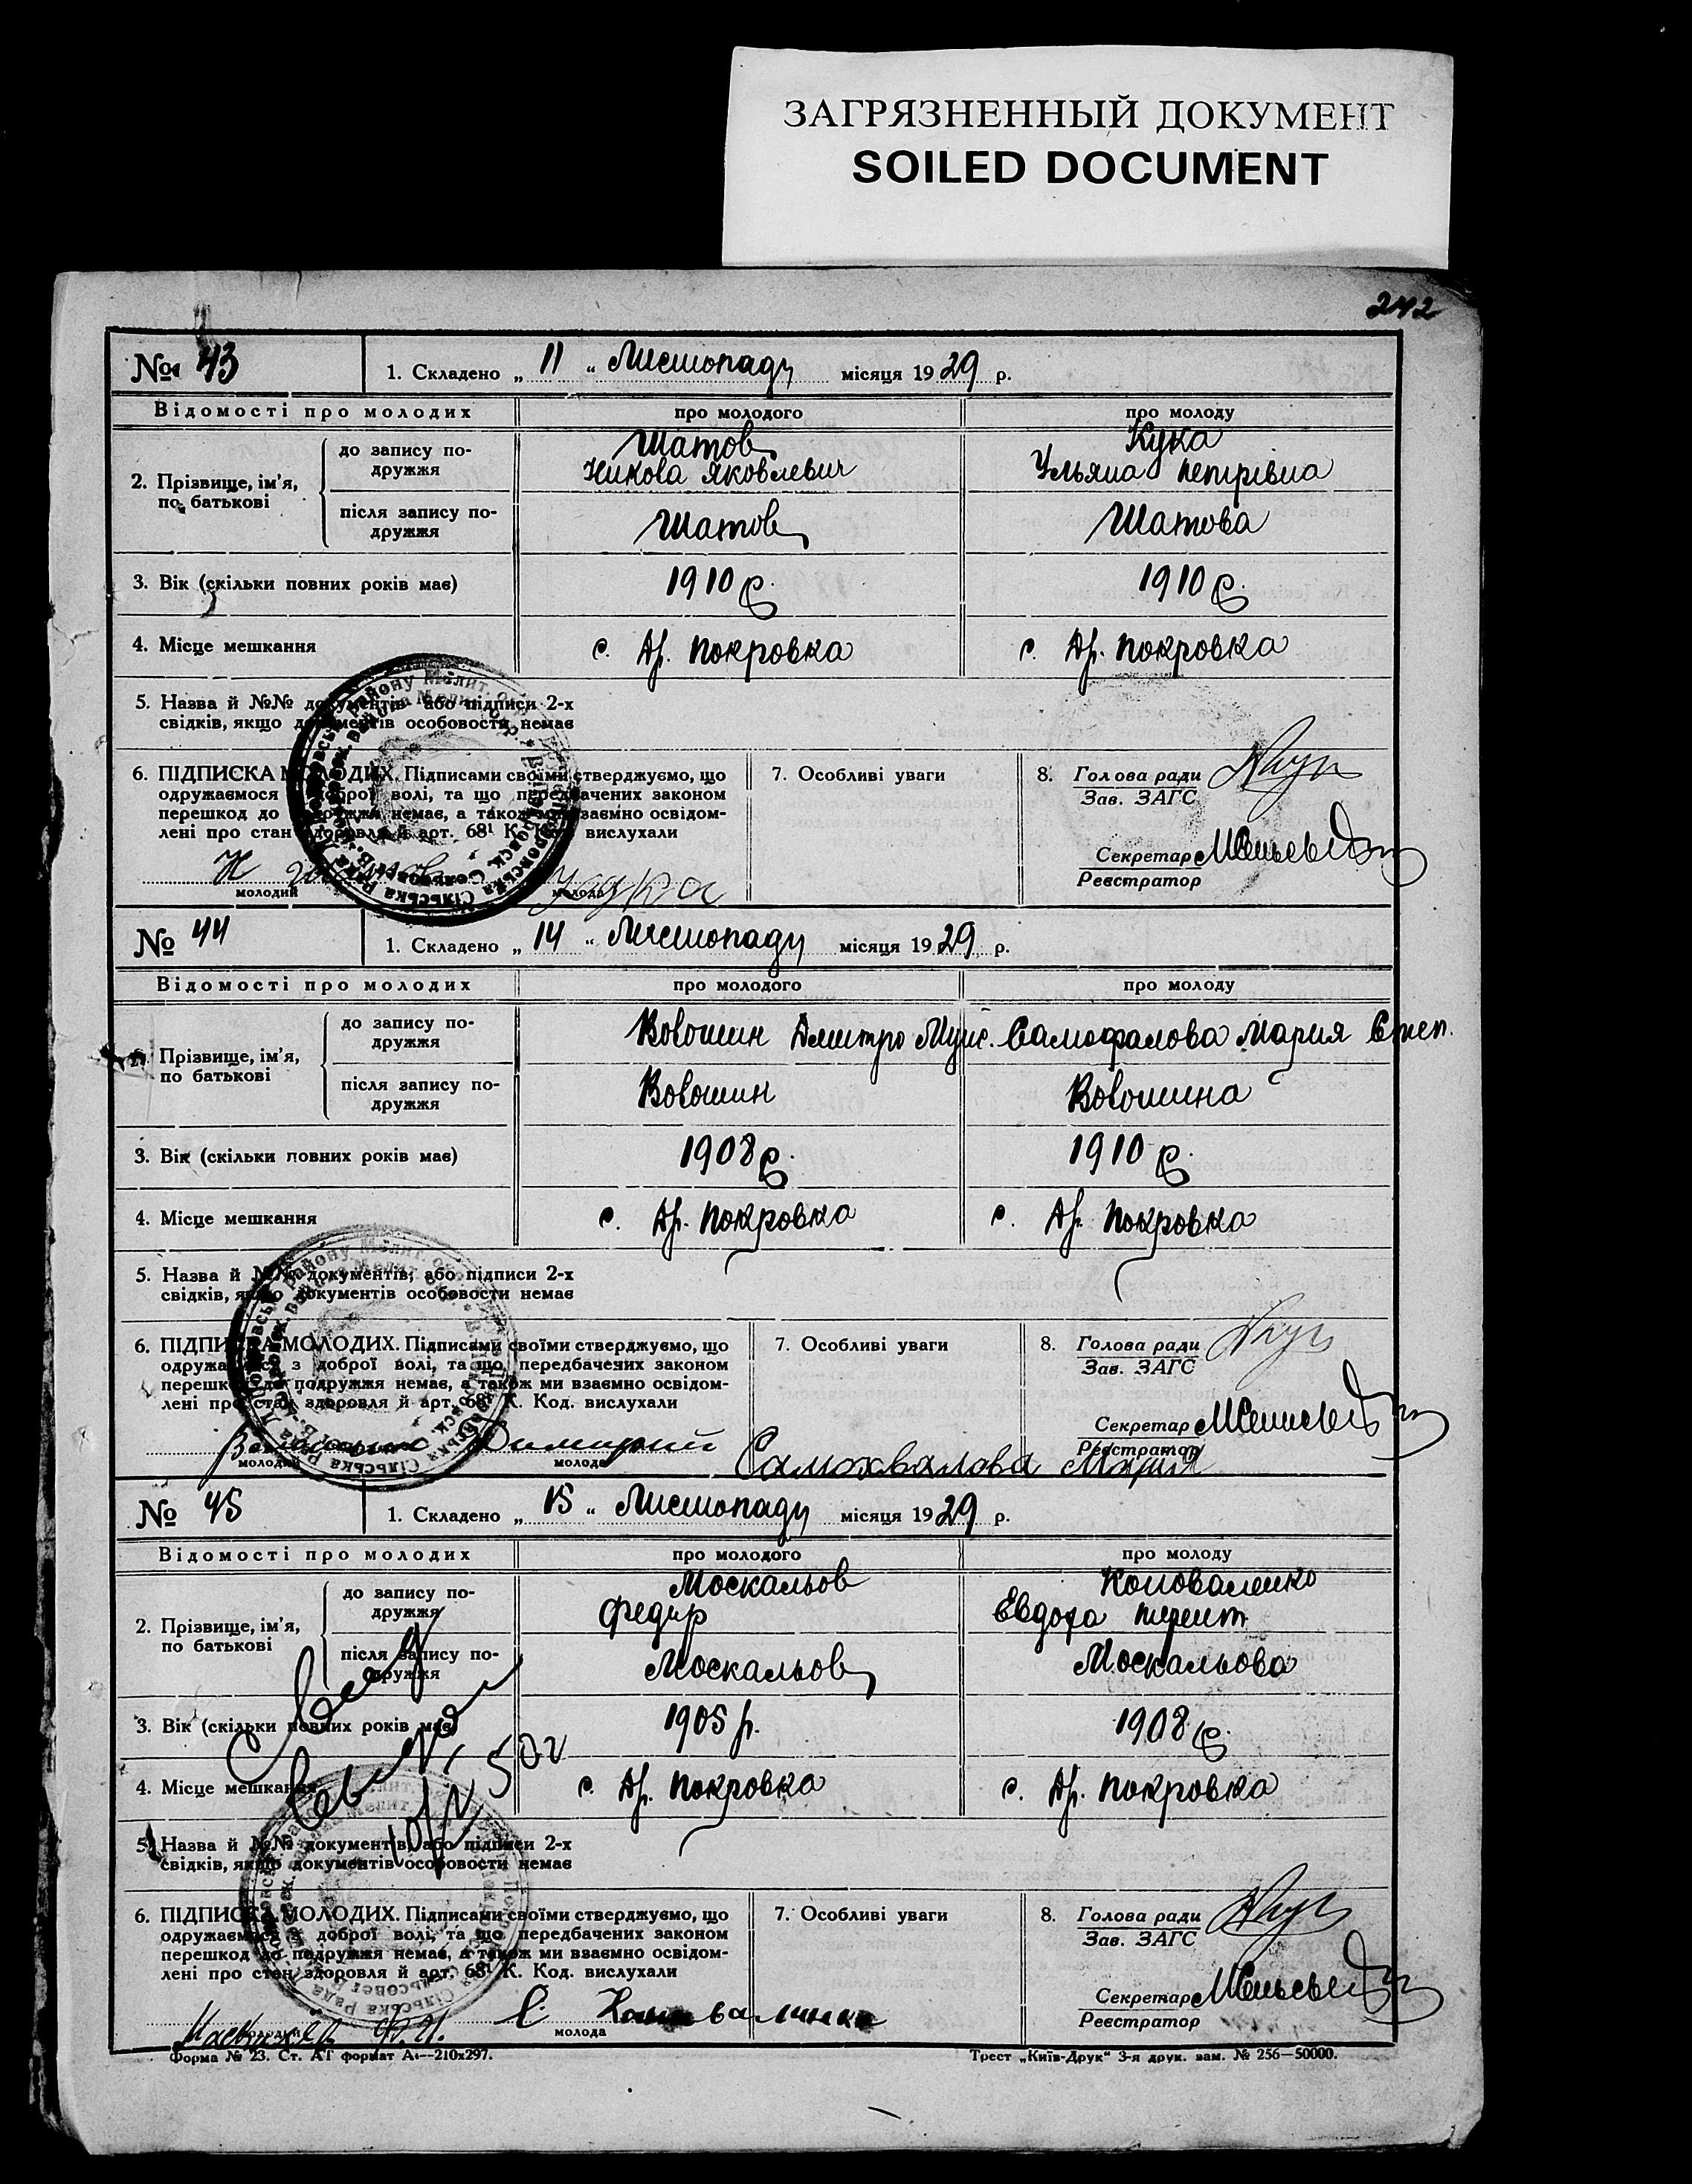 ЗАГРЯЗНЕННЫЙ ДОКУМЕНТ
SOILED DOCUMENT
242
№ 43 1. Складено „ 11 “ Листопаду місяця 1929 р.
Відомості про молодих про молодого про молоду
2. Прізвище, ім'я, по батькові
до запису по-дружжя Шатов Кука
Никола Яковлевич Ульяна Петрівна
після запису по-дружжя Шатов Шатова
3. Вік (скільки повних років має) 1910 р. 1910 р.
4. Місце мешкання с. Др. Покровка с. Др. Покровка
5. Назва й №№ документів, або підписи 2-х
свідків, якщо документів особовости немає
6. ПІДПИСКА МОЛОДИХ. Підписами своїми стверджуємо, що 7. Особливі уваги 8. Голова ради
одружаємося з доброї волі, та що передбачених законом Зав. ЗАГС
перешкод до подружжя немає, а також ми взаємно освідом-
лені про стан здоровля й арт. 68¹ К. Код. вислухали Секретар
Реєстратор
молодий молода
№ 44 1. Складено „ 14 “ Листопаду місяця 1929 р.
Відомості про молодих про молодого про молоду
2. Прізвище, ім'я, по батькові
до запису по-дружжя Вовошин Дмитро Самофалова Мария Степ.
після запису по-дружжя Вовошин Вовошина
3. Вік (скільки повних років має) 1908 р. 1910 р.
4. Місце мешкання с. Др. Покровка с. Др. Покровка
5. Назва й №№ документів, або підписи 2-х
свідків, якщо документів особовости немає
6. ПІДПИСКА МОЛОДИХ. Підписами своїми стверджуємо, що 7. Особливі уваги 8. Голова ради
одружаємося з доброї волі, та що передбачених законом Зав. ЗАГС
перешкод до подружжя немає, а також ми взаємно освідом-
лені про стан здоровля й арт. 68¹ К. Код. вислухали Секретар
Реєстратор
Димитрий Самохвалова Мария
молодий молода
№ 45 1. Складено „ 15 “ Листопаду місяця 1929 р.
Відомості про молодих про молодого про молоду
2. Прізвище, ім'я, по батькові
до запису по-дружжя Москальов Коноваленко
Федир Евдоха
після запису по-дружжя Москальов Москальова
3. Вік (скільки повних років має) 1905 р. 1908 р.
4. Місце мешкання с. Др. Покровка с. Др. Покровка
5. Назва й №№ документів, або підписи 2-х
свідків, якщо документів особовости немає
6. ПІДПИСКА МОЛОДИХ. Підписами своїми стверджуємо, що 7. Особливі уваги 8. Голова ради
одружаємося з доброї волі, та що передбачених законом Зав. ЗАГС
перешкод до подружжя немає, а також ми взаємно освідом-
лені про стан здоровля й арт. 68¹ К. Код. вислухали Секретар
Реєстратор
молодий молода
Форма № 23. Ст. АГ формат А₄—210х297. Трест „Київ-Друк“ 3-я друк. зам. № 256—50000.